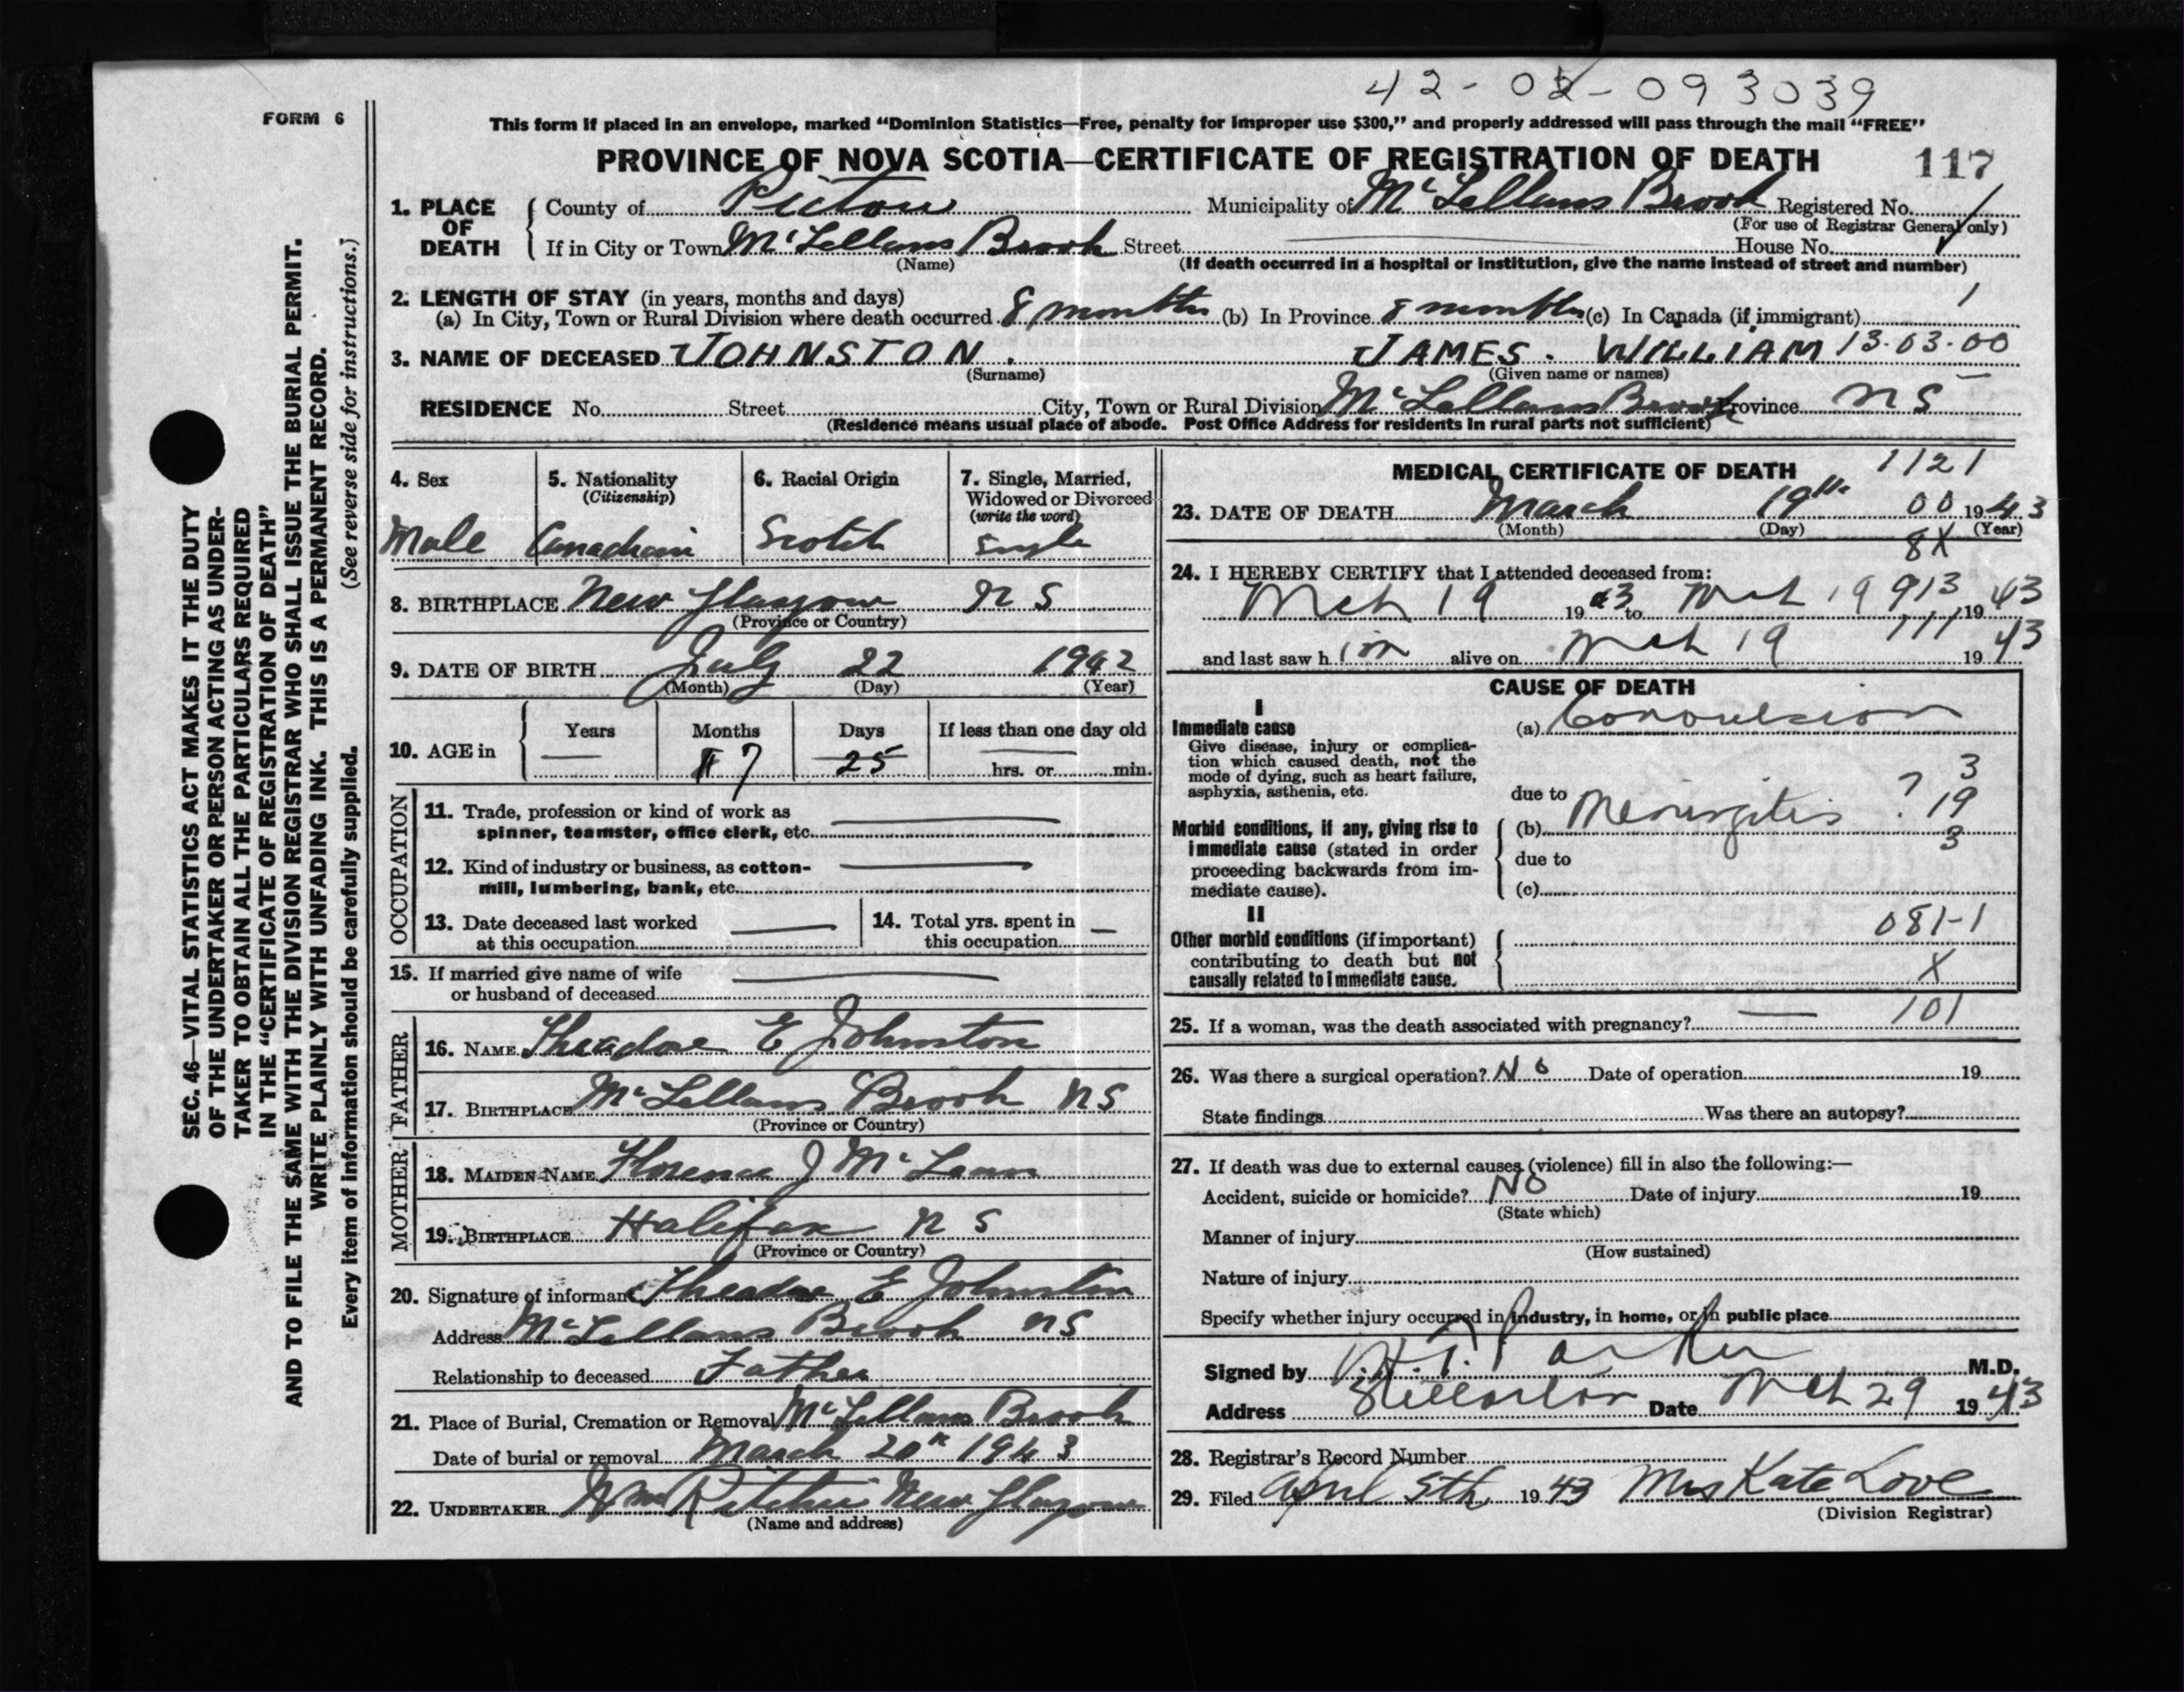 42-02-093039
FORM 6
This form if placed in an envelope, marked “Dominion Statistics—Free, penalty for improper use $300,” and properly addressed will pass through the mail “FREE”
PROVINCE OF NOVA SCOTIA—CERTIFICATE OF REGISTRATION OF DEATH 117
1. PLACE OF DEATH County of Pictou Municipality of McLellans Brook Registered No.
(For use of Registrar General only)
If in City or Town McLellans Brook Street House No.
(Name) (If death occurred in a hospital or institution, give the name instead of street and number)
2. LENGTH OF STAY (in years, months and days)
(a) In City, Town or Rural Division where death occurred 8 months (b) In Province 8 months (c) In Canada (if immigrant)
3. NAME OF DECEASED JOHNSTON. JAMES. WILLIAM 13-03-00
(Surname) (Given name or names)
RESIDENCE No. Street City, Town or Rural Division McLellans Brook Province N S
(Residence means usual place of abode. Post Office Address for residents in rural parts not sufficient)
4. Sex 5. Nationality (Citizenship) 6. Racial Origin 7. Single, Married, Widowed or Divorced (write the word)
Male Canadian Scotch Single
8. BIRTHPLACE New Glasgow N S
(Province or Country)
9. DATE OF BIRTH July 22 1942
(Month) (Day) (Year)
10. AGE in Years Months Days If less than one day old
— 7 25 hrs. or min.
OCCUPATION
11. Trade, profession or kind of work as
spinner, teamster, office clerk, etc.
12. Kind of industry or business, as cotton-
mill, lumbering, bank, etc.
13. Date deceased last worked
at this occupation
14. Total yrs. spent in
this occupation
15. If married give name of wife
or husband of deceased
FATHER
16. NAME Theadore E Johnston
17. BIRTHPLACE McLellans Brook N S
(Province or Country)
MOTHER
18. MAIDEN NAME Florence J
19. BIRTHPLACE Halifax N S
(Province or Country)
20. Signature of informant Theadore E Johnston
Address McLellans Brook N S
Relationship to deceased Father
21. Place of Burial, Cremation or Removal McLellans Brook
Date of burial or removal March 20th 1943
22. UNDERTAKER Wm Ritchie New Glasgow
(Name and address)
MEDICAL CERTIFICATE OF DEATH 1121
23. DATE OF DEATH March 19th 00 1943
(Month) (Day) (Year)
8X
24. I HEREBY CERTIFY that I attended deceased from:
Mch 19 1943 to Mch 19 913 1943
and last saw h im alive on Mch 19 111 1943
CAUSE OF DEATH
I
Immediate cause (a) Convulsion
Give disease, injury or complica-
tion which caused death, not the
mode of dying, such as heart failure,
asphyxia, asthenia, etc.
3
due to
Morbid conditions, if any, giving rise to (b) Meningitis ? 19
immediate cause (stated in order due to 3
proceeding backwards from im-
mediate cause). (c)
II
081-1
Other morbid conditions (if important)
contributing to death but not
causally related to immediate cause. X
25. If a woman, was the death associated with pregnancy? — 101
26. Was there a surgical operation? No Date of operation 19
State findings Was there an autopsy?
27. If death was due to external causes (violence) fill in also the following:—
Accident, suicide or homicide? NO Date of injury 19
(State which)
Manner of injury
(How sustained)
Nature of injury
Specify whether injury occurred in industry, in home, or in public place
Signed by Parker M.D.
Address Stellarton Date Mch 29 1943
28. Registrar's Record Number
29. Filed April 5th 1943 Mrs Kate Love
(Division Registrar)
SEC. 46—VITAL STATISTICS ACT MAKES IT THE DUTY
OF THE UNDERTAKER OR PERSON ACTING AS UNDER-
TAKER TO OBTAIN ALL THE PARTICULARS REQUIRED
IN THE “CERTIFICATE OF REGISTRATION OF DEATH”
AND TO FILE THE SAME WITH THE DIVISION REGISTRAR WHO SHALL ISSUE THE BURIAL PERMIT.
WRITE PLAINLY WITH UNFADING INK. THIS IS A PERMANENT RECORD.
Every item of information should be carefully supplied. (See reverse side for instructions.)